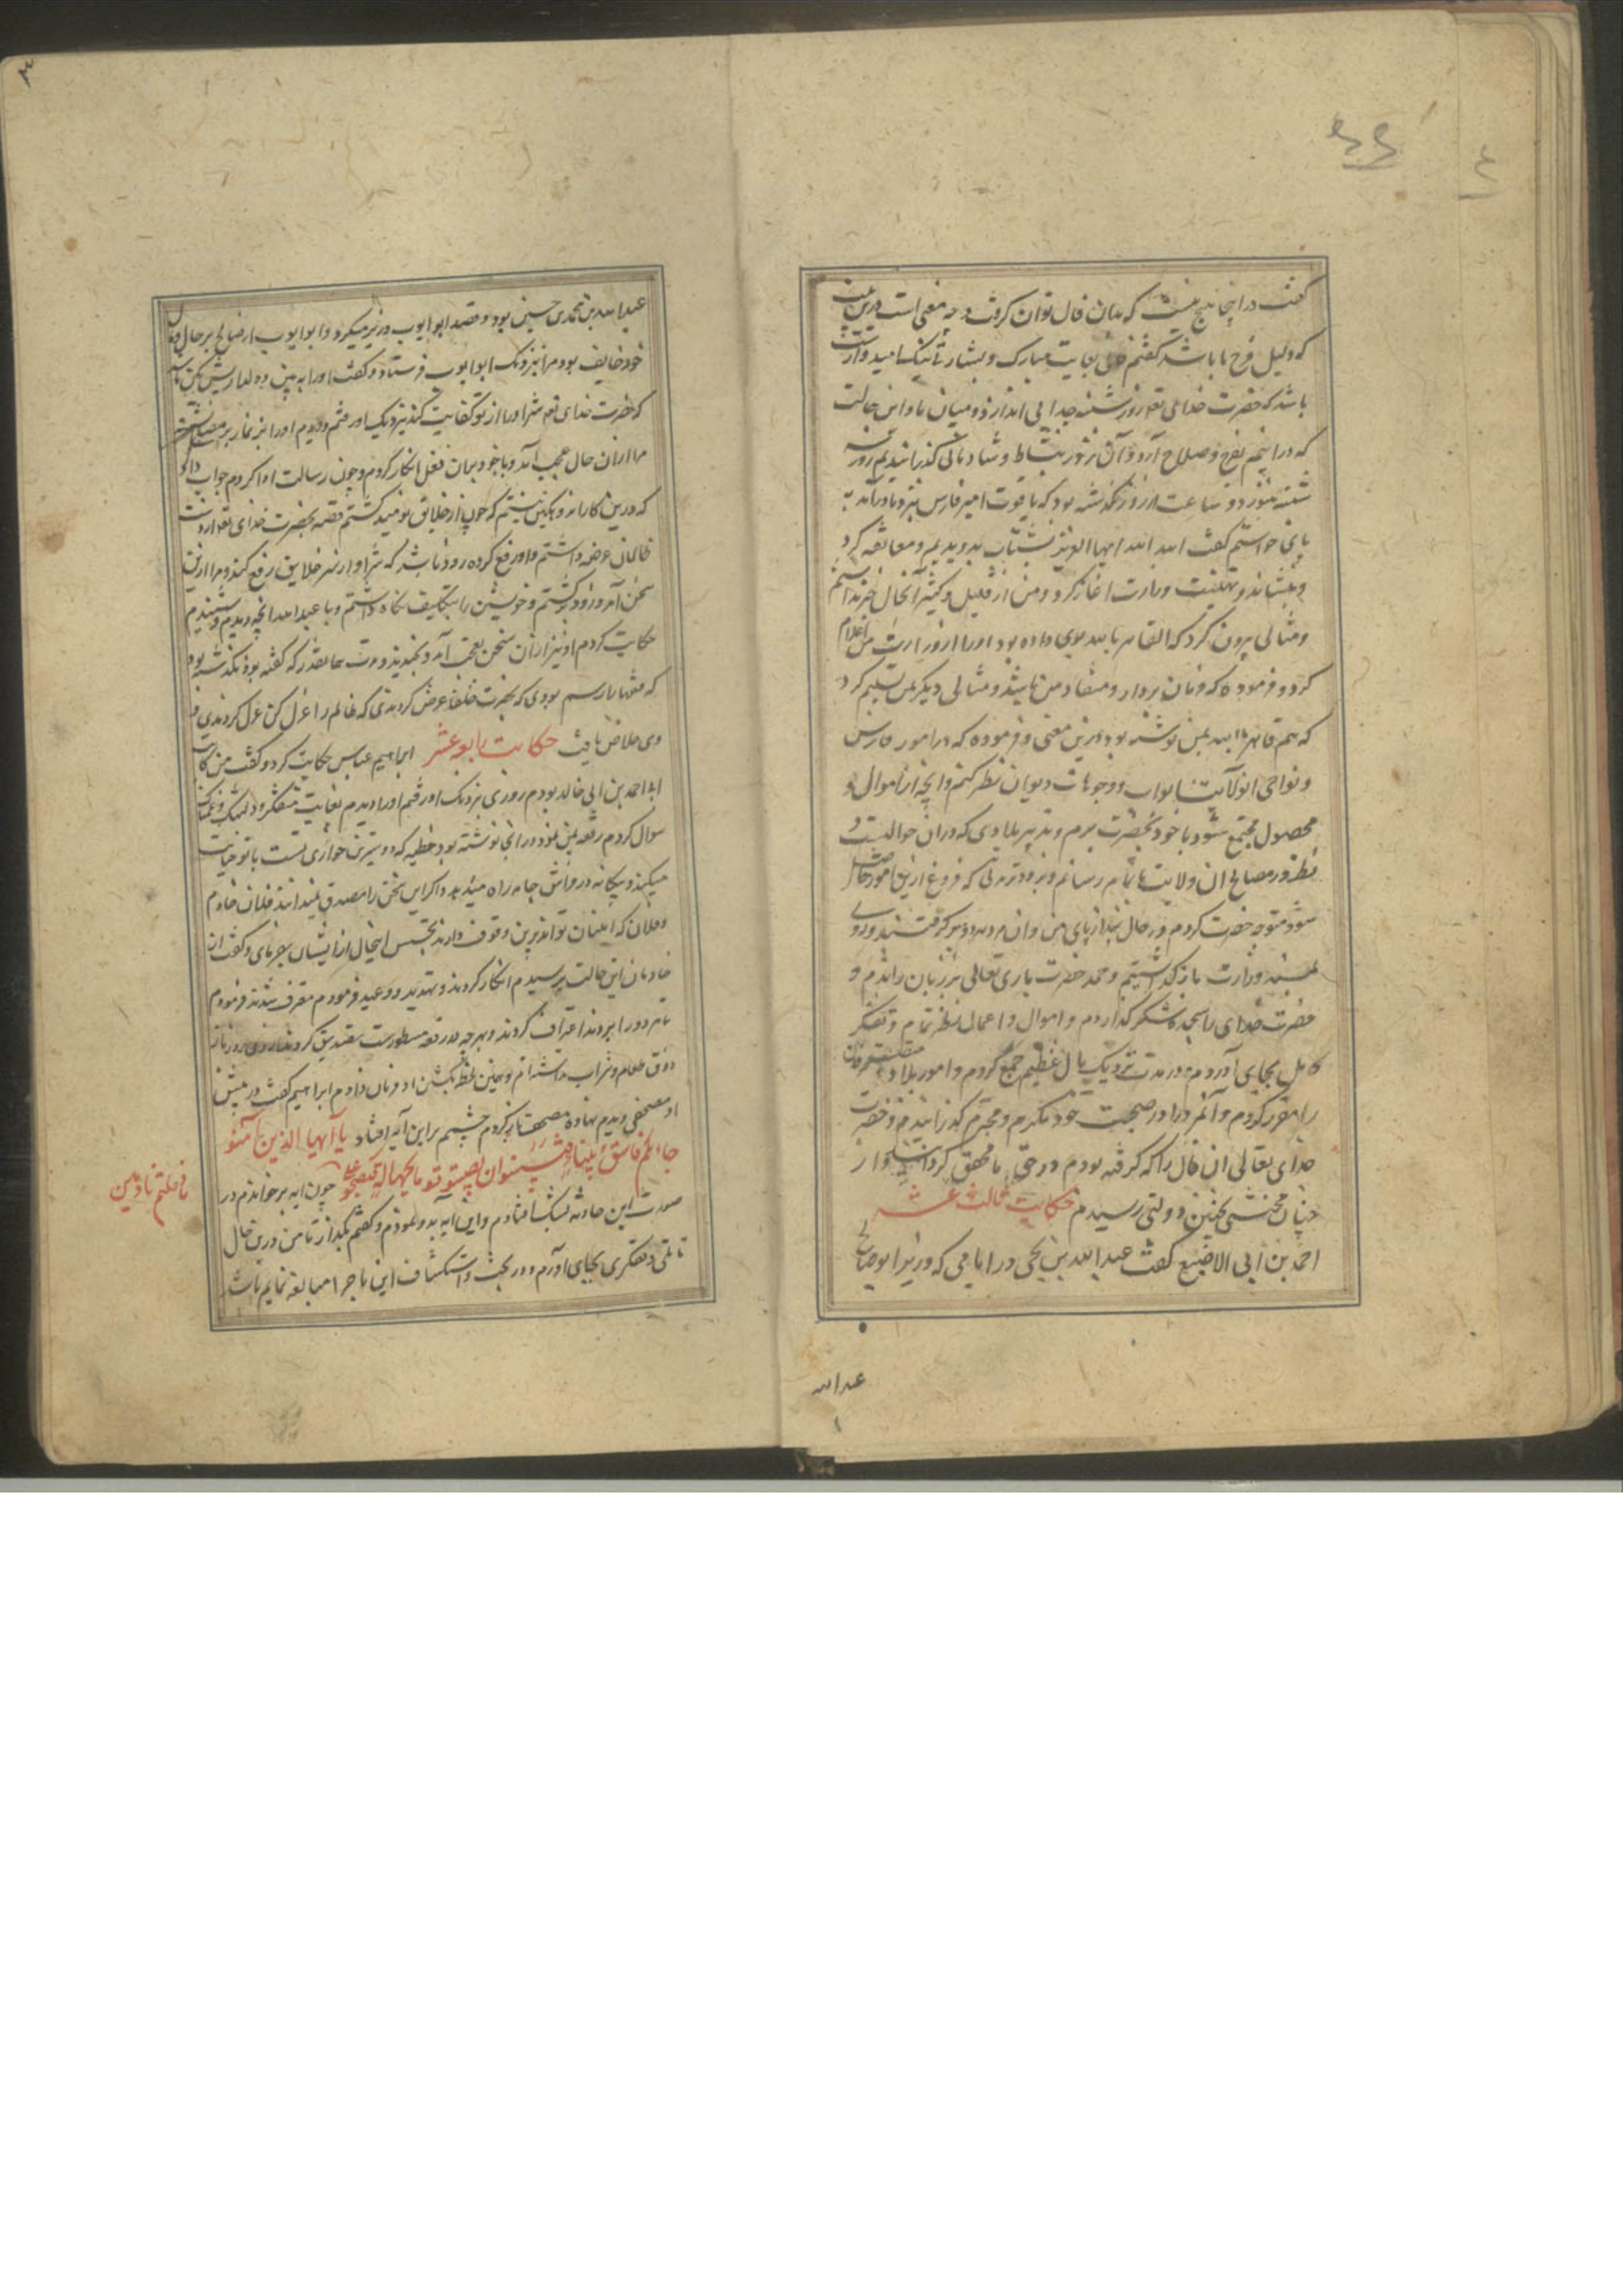 گفت در اینجا هیچ نیست که بدان فال توان گرفت و چه معنی است درین بیت
که دلیل فرح ما باشد گفتم فالی بغایت مبارک و بشارتی نیک امیدوارست
باشد که حضرت خدای تع روز شنبه جدایی اندازد و میان ما و این حالت
که در اینیم بفرح و صلاح آرد و آن روز بنشاط و شادمانی گذرانیدیم روز سه
شنبه هنوز دو ساعت از روز نگذشته بود که یاقوت امیر فارس بنزد ما درآمد بر
پای خواستم گفت الله الله ایها العزیز بشتاب بدویدیم و معانقه کرد
و بنشاند و تهنیت وزارت اغاز کرد و من از قلیل و کثیر آنحال خبر نداشتم
و مثالی بیرون کرد که القاهر بالله بوی داده بود او را از وزارت من اعلام
کرد و فرموده که فرمان بردار و منقاد من باشد و مثالی دیگر بمن تسلیم کرد
که هم قاهر بالله بمن نوشته بود درین معنی و فرموده که در امور فارس
و نواحی آن ولایت و ابواب و وجوهات دیوان نظر کنم و انچه از اموال و
محصول مجتمع شود با خود بحضرت برم و تدبیر بلادی که در ان حوالیست و
نظر در مصالح ان ولایت بتمام رسانم و بزودتر مدتی که فروغ ازین امور حاصل
شود متوجه حضرت کردم در حال بند از پای من و ان مرد هر دو برگرفتند و روی
بمسند وزارت باز گذاشتیم و حمد حضرت باری تعالی بر زبان راندم و
حضرت خدای را سجده شکر گذاردم و اموال و اعمال نظر تمام و تفکر
کامل بجای آوردم و در مدت نزدیک مال عظیم جمع کردم و امور بلاد
را مقرر کردم و آنمرد را در صحبت خود مکرم و محترم گذرانیدم و حضرت
خدای تعالی ان فال را که گرفته بودم در حق ما محقق گردانید و از
چنان محنتی بچنین دولتی رسیدم حکایت ثالث عشر
احمد بن ابی الاصبع گفت عبدالله بن یحی در ایامی که وزیر ابو صالح
عبدالله
عبدالله بن محمد بن حسین بود و قصد ابو ایوب وزیر میکرد و ابو ایوب از صالح بر حال
خود خایف بود مرا بنزدیک ابوایوب فرستاد و گفت او را به بین و دلداریش کن
که حضرت خدای تع شر او را از تو کفایت کند بنزدیک او رفتم و دیدم او را بر نماز بر مصلی نشسته
مرا از ان حال عجب آمد و با خود بدان فعل انکار کردم و چون رسالت ادا کردم جواب داد
که درین کار اندوهگین نیستم که چون از خلایق نومید گشتم قصه بحضرت خدای تع از دست
ظالمان عرضه داشتم و او رفع کرده زود باشد که شر او از سر خلایق رفع کند و مرا ازین
سخن آمد و زود برگشتم و خویشتن را بتکلیف نگاه داشتم و با عبدالله انچه دیدم و شنیدم
حکایت کردم او نیز از ان سخن بعجب آمد و بخندید و مدت همانقدر که گفته بود نگذشته بود
وی خلاص یافت حکایت رابع عشر ابراهیم عباس حکایت کرد و گفت من کاتب
احمد بن ابی خالد بودم روزی بنزدیک او رفتم او را دیدم بغایت متفکر و دلتنگ و غمناک
سوال کردم رقعه بمن نمود در انجا نوشته بود خطیه که دوسترین جواری تست با تو خیانت
میکند و بیکانه در فراش جامه راه میدهد و اگر این سخن را مصدق نمیدانند فلان خادم
و فلان که امینان تواند برین وقوف دارند تجسس اینحال از ایشان بفرمای و گفت ان
خادمان این حالت پرسیدم انکار کردند و تهدید و وعید فرمودم معترف نشدند فرمودم
تا هر دو را بزدند اعتراف کردند و بهر چه در رقعه مسطورست تصدیق کردند از دی روز باز
ذوق طعام و شراب نداشته ام و همین لحظه بکشتن او فرمان دادم ابراهیم گفت در پیش
او مصحفی دیدم نهاده مصحف باز کردم چشمم بر این آیه افتاد یا ایها الذین آمنو
جاءکم فاسق بنباء فتبینوا ان تصیبوا قوما بجهالة فتصبحو علی چون ایه برخواندم در
ما فعلتم نادمین
صورت این حادثه بشک افتادم و این ایه بدو نمودم و گفتم بگذار تا من درین حال
تاملی و تفکری بجای آورم و در بحث و استکشاف این ماجرا مبالغه نمایم